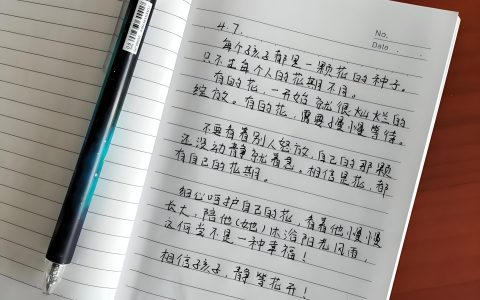 4.7.
No.
Date
每个孩子都是一颗花的种子。
只不过每个人的花期不同。
有的花，一开始就很灿烂的
绽放。有的花，需要慢慢等待。
不要看着别人怒放，自己的那颗
还没动静就着急。相信是花，都
有自己的花期。
细心呵护自己的花，看着他慢慢
长大，陪他(她)沐浴阳光风雨，
这何尝不是一种幸福！
相信孩子，静等花开！